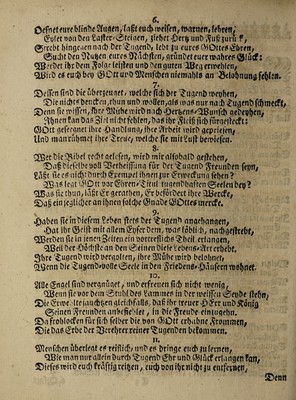 6.
Oefnet eure blinde Augen, laßt euch weisen, warnen, lehren,
Folet von den Laster-Steinen, ziehet Hertz und Fuß zurück,
Strebt hingegen nach der Tugend, lebt zu eures GOttes Ehren,
Sucht den Nutzen eures Nächsten, gründet eure wahres Glück:
Werdet ihr dem Folge leisten und den guten Weg erwehlen,
Wird es euch bey GOtt und Menschen niemahls an Belohnung fehlen.
7.
Dessen sind die überzeuget, welche sich der Tugend weyhen,
Die nichts dencken, thun und wollen, als was nur nach Tugend schmeckt,
Denn sie wissen, ihre Mühe wird nach Hertzens-Wunsch gedeyhen,
Ihnen kan das Ziel nicht fehlen, das ihr Fleiß sich fürgesteckt:
GOtt gesegnet ihre Handlung, ihre Arbeit wird gepriesen,
Und man rühmet ihre Treue, welche sie mit Lust bewiesen.
8.
Wer die Bibel recht gelesen, wird mir alsobald gestehen,
Daß dieselbe voll Verheissung für der Tugend Freunden seyn,
Läßt sie es nicht durch Exempel ihnen zur Erweckung sehen?
Was legt GOtt vor Ehren-Titul tugendhafften Seelen bey?
Was sie thun, läßt Er gerathen, Er befördert ihre Wercke,
Daß ein jeglicher an ihnen solche Gnade GOttes mercke.
9.
Haben sie in diesem Leben stets der Tugend angehangen,
Hat ihr Geist mit allem Eyfer dem, was löblich, nachgestrebt,
Werden sie in jenen Zeiten ein vortreflliches Theil erlangen,
Weil der Höchste an den Seinen diese Lebens-Art erhebt.
Ihre Tugend wird vergolten, ihre Mühe wird belohnet,
Wenn die Tugendvolle Seele in den Friedens-Häusern wohnet.
10.
Alle Engel sind vergnüget, und erfreuen sich nicht wenig,
Wenn sie vor dem Stuhl des Lammes in der weissen Seyde stehn,
Die Erwehlte jauchzen gleichfalls, daß ihr treuer HErr und König
Seinen Freunden anbefiehlet, in die Freude einzugehn.
Da frohlocken für sich selber die von GOtt erhabne Frommen,
Die das Erbe der Verehrer reiner Tugenden bekommen.
11.
Menschen überlegt es reißlich, und es bringe euch zu lernen,
Wie man nur allein durch Tugend Ehr und Glück erlangen kan,
Dieses wird euch kräftig reitzen, euch von ihr nicht zu entfernen,
Denn